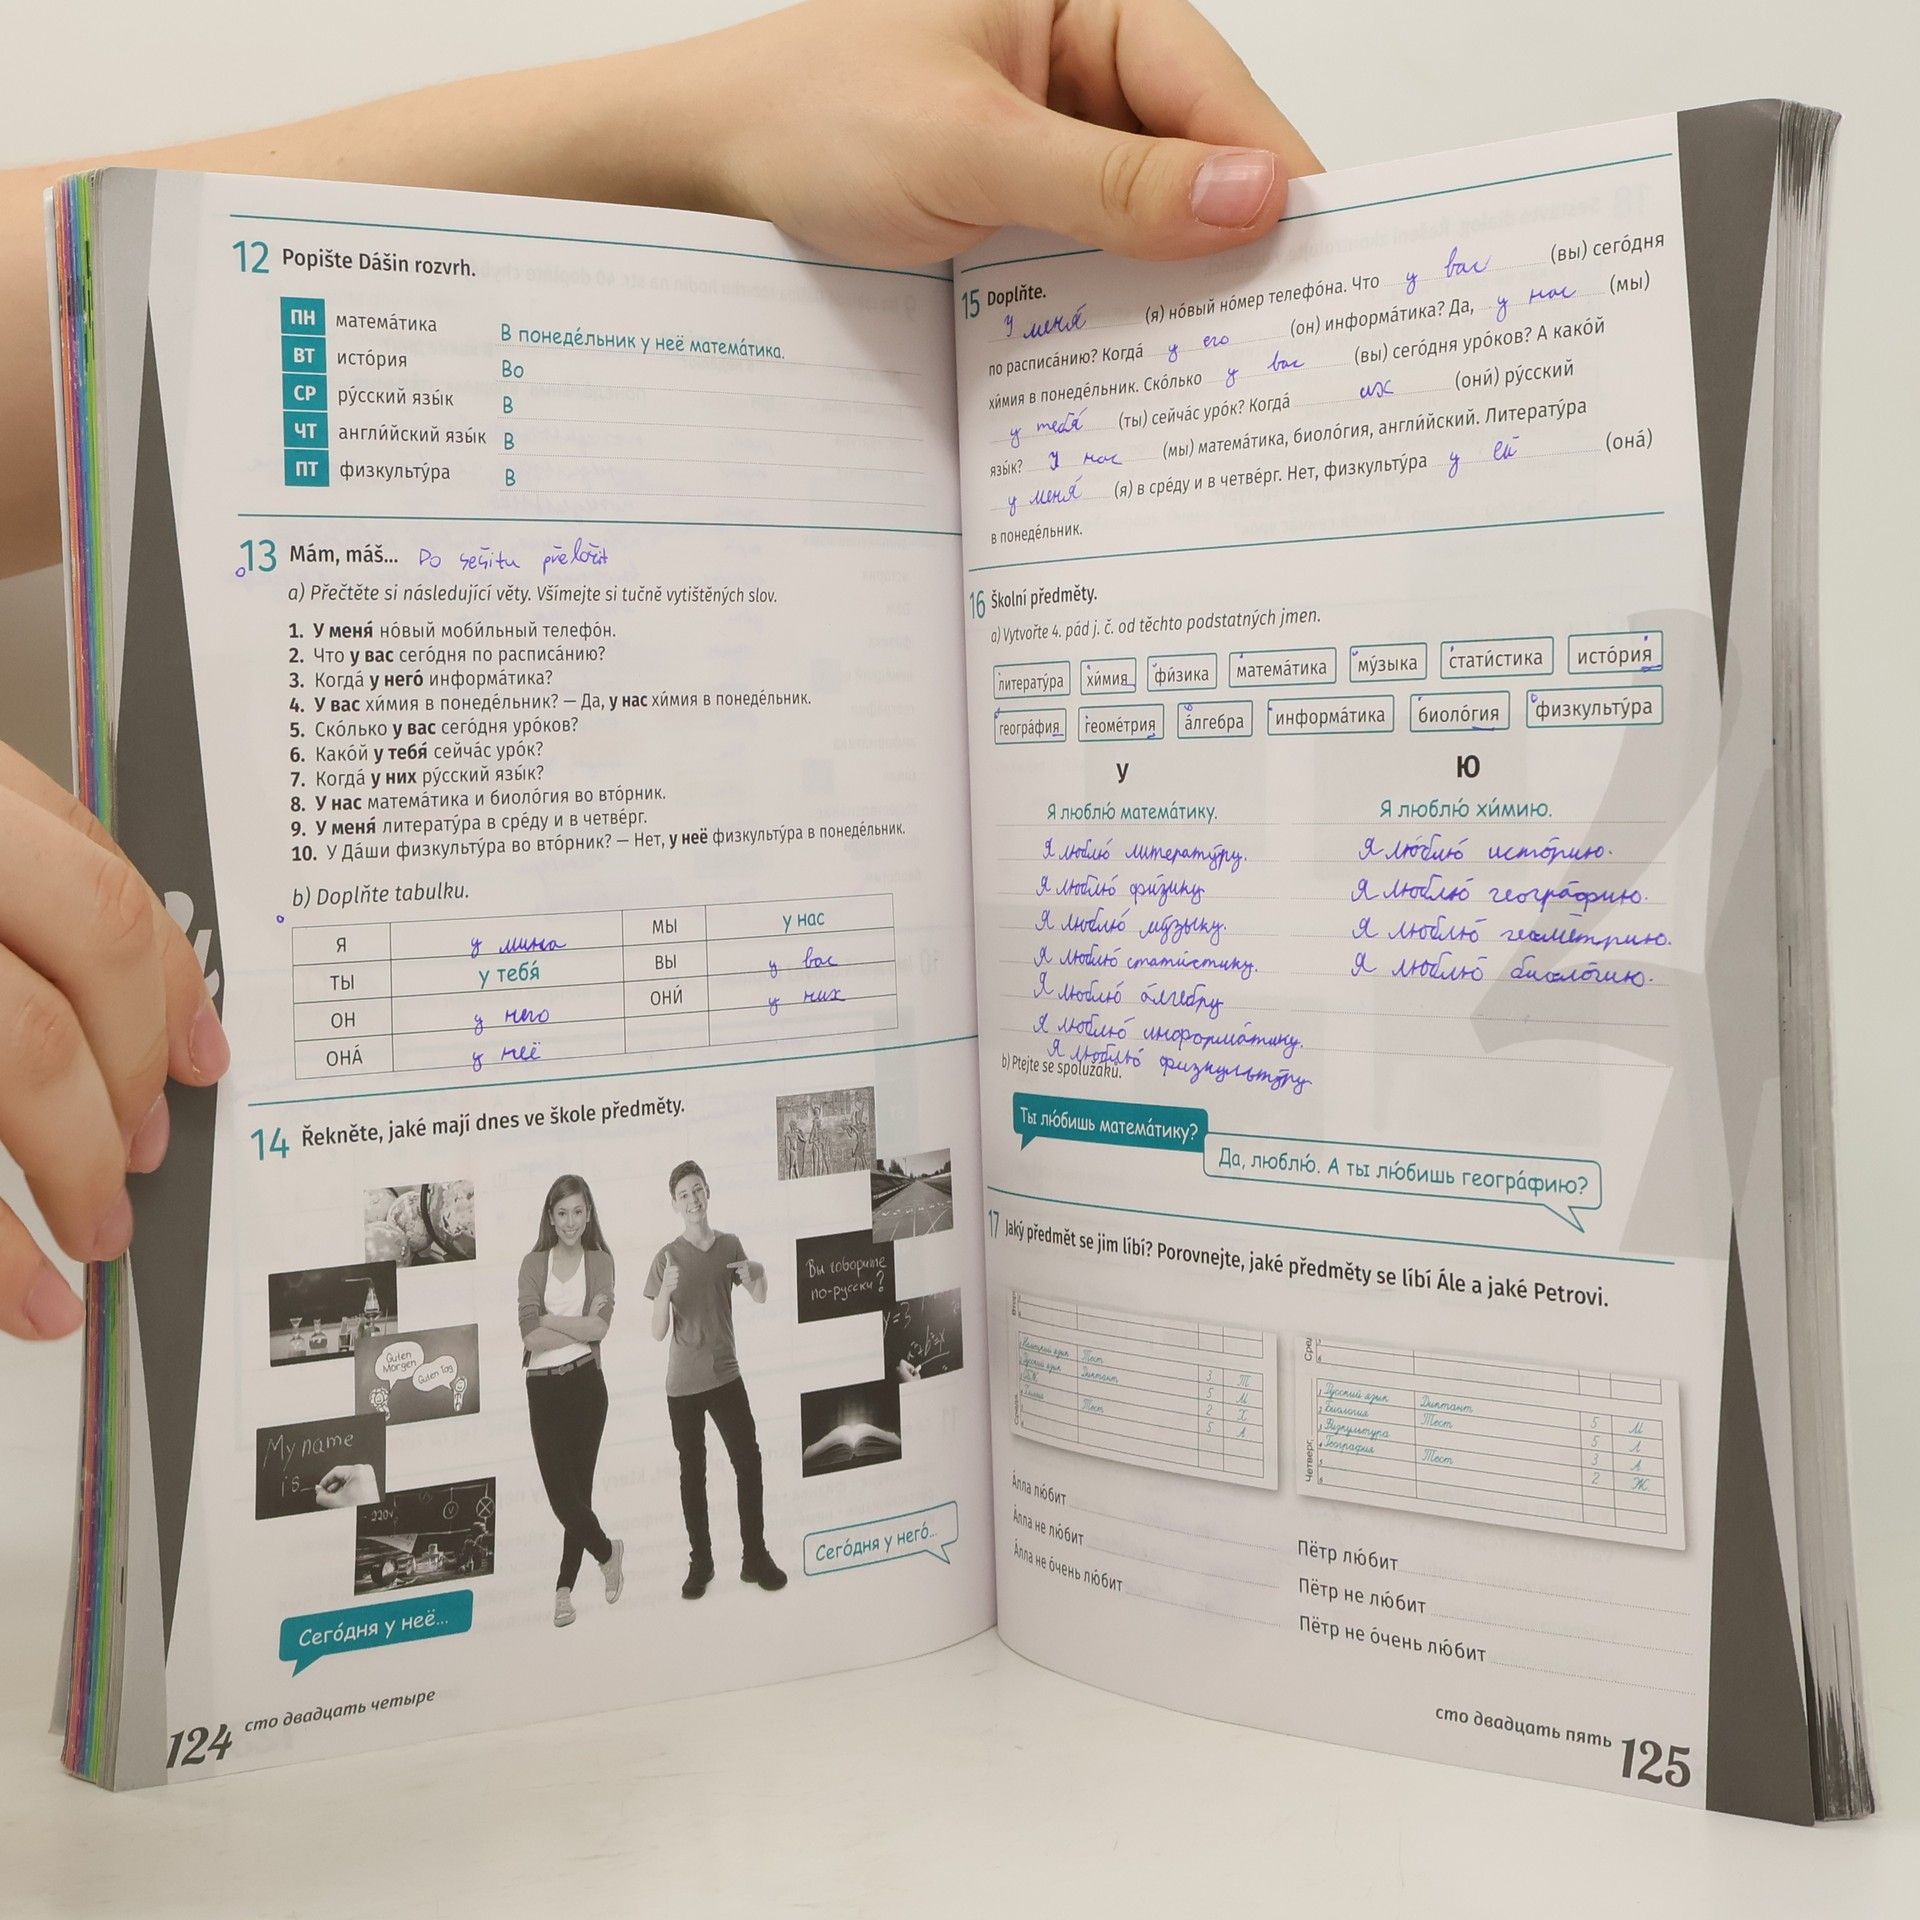 12 Popište Dášin rozvrh.
ПН матема́тика В понеде́льник у неё матема́тика.
ВТ исто́рия Во
СР ру́сский язы́к В
ЧТ англи́йский язы́к В
ПТ физкульту́ра В
13 Mám, máš... Do sešitu přeložit
a) Přečtěte si následující věty. Všímejte si tučně vytištěných slov.
1. У меня́ но́вый моби́льный телефо́н.
2. Что у вас сего́дня по расписа́нию?
3. Когда́ у него́ информа́тика?
4. У вас хи́мия в понеде́льник? — Да, у нас хи́мия в понеде́льник.
5. Ско́лько у вас сего́дня уро́ков?
6. Како́й у тебя́ сейча́с уро́к?
7. Когда́ у них ру́сский язы́к?
8. У нас матема́тика и биоло́гия во вто́рник.
9. У меня́ литерату́ра в сре́ду и в четве́рг.
10. У Да́ши физкульту́ра во вто́рник? — Нет, у неё физкульту́ра в понеде́льник.
b) Doplňte tabulku.
Я у мина МЫ у нас
ТЫ у тебя́ ВЫ у вас
ОН у него ОНИ́ у них
ОНА́ у неё
14 Řekněte, jaké mají dnes ve škole předměty.
Guten Morgen
Guten Tag
My name is
220V
V
Вы говорите по-русски?
Сего́дня у неё...
Сего́дня у него́...
124 сто двадцать четыре
15 Doplňte.
У меня́ (я) но́вый но́мер телефо́на. Что у вас (вы) сего́дня
по расписа́нию? Когда́ у его (он) информа́тика? Да, у нас (мы)
хи́мия в понеде́льник. Ско́лько у вас (вы) сего́дня уро́ков? А како́й
у тебя́ (ты) сейча́с уро́к? Когда́ их (они́) ру́сский
язы́к? У нас (мы) матема́тика, биоло́гия, англи́йский. Литерату́ра
у меня́ (я) в сре́ду и в четве́рг. Нет, физкульту́ра у ей (она́)
в понеде́льник.
16 Školní předměty.
a) Vytvořte 4. pád j. č. od těchto podstatných jmen.
литерату́ра хи́мия фи́зика матема́тика му́зыка стати́стика исто́рия
геогра́фия геоме́трия а́лгебра информа́тика биоло́гия физкульту́ра
У Ю
Я люблю́ матема́тику. Я люблю́ хи́мию.
Я люблю́ литерату́ру. Я люблю́ исто́рию.
Я люблю́ фи́зику Я люблю́ геогра́фию.
Я люблю́ му́зыку. Я люблю́ геоме́трию.
Я люблю́ стати́стику. Я люблю́ биоло́гию.
Я люблю́ а́лгебру
Я люблю́ информа́тику.
Я люблю́ физкульту́ру
b) Ptejte se spolužáků.
Ты лю́бишь матема́тику?
Да, люблю́. А ты лю́бишь геогра́фию?
17 Jaký předmět se jim líbí? Porovnejte, jaké předměty se líbí Ále a jaké Petrovi.
Немецкий язык Тест 3 Т
Русский язык Диктант 5 М
2 Х
Химия Тест 5 Л
Русский язык Диктант 5 М
Биология Тест 5 Л
Физкультура 3 Л
География Тест 2 Ж
Четверг
А́лла лю́бит
А́лла не лю́бит
А́лла не о́чень лю́бит
Пётр лю́бит
Пётр не лю́бит
Пётр не о́чень лю́бит
сто двадцать пять 125